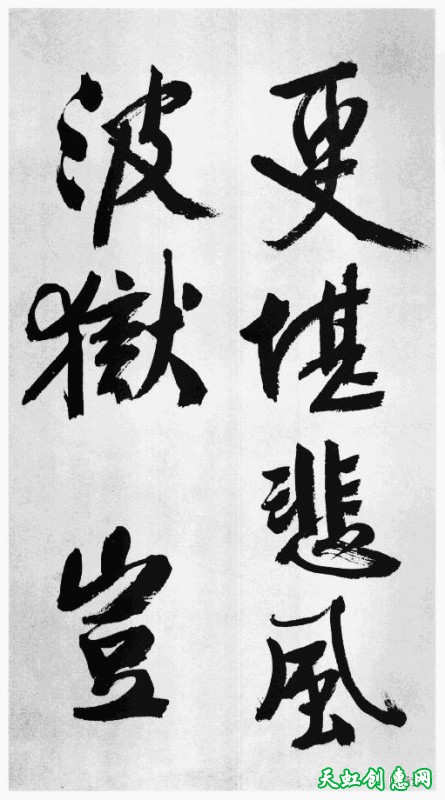 更堪悲風
波獄豈
天虹创惠网